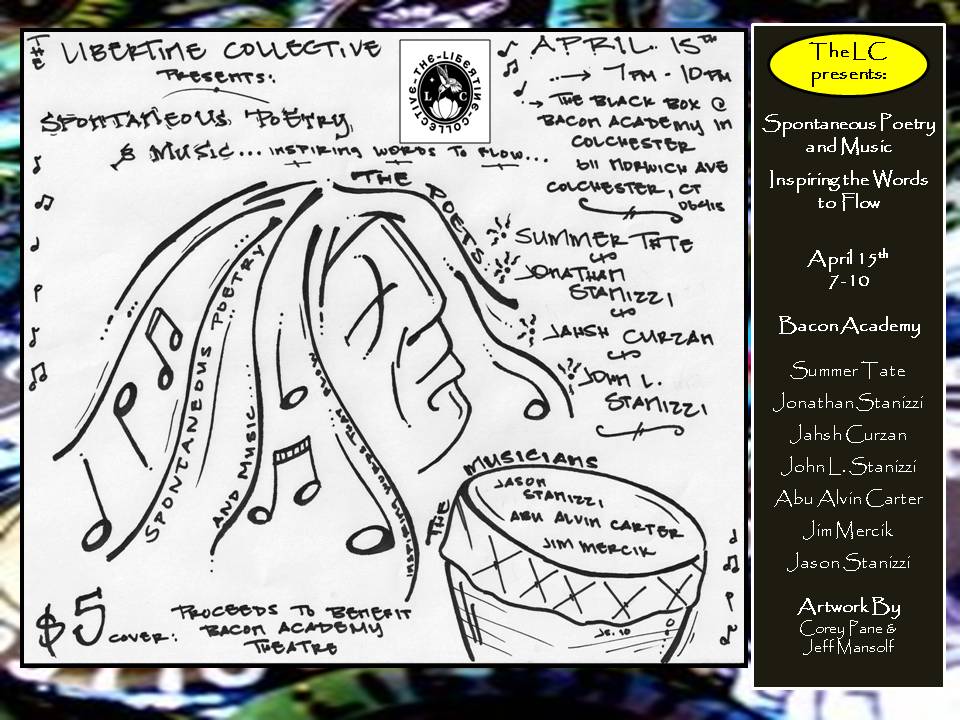 THE LIBERTINE COLLECTIVE
PRESENTS:
SPONTANEOUS POETRY
& MUSIC... INSPIRING WORDS TO FLOW...
THE-LIBERTINE-COLLECTIVE
L C
APRIL 15TH
7PM - 10PM
THE BLACK BOX @
BACON ACADEMY IN
COLCHESTER
611 NORWICH AVE
COLCHESTER, CT
06415
THE POETS
SUMMER TATE
JONATHAN
STANIZZI
JAHSH CURZAN
JOHN L.
STANIZZI
SPONTANEOUS POETRY
AND MUSIC...
THE MUSICIANS
JASON
STANIZZI
ABU ALVIN CARTER
JIM MERCIK
$5 COVER:
PROCEEDS TO BENEFIT
BACON ACADEMY
THEATRE
The LC
presents:
Spontaneous Poetry
and Music
Inspiring the Words
to Flow
April 15th
7-10
Bacon Academy
Summer Tate
Jonathan Stanizzi
Jahsh Curzan
John L. Stanizzi
Abu Alvin Carter
Jim Mercik
Jason Stanizzi
Artwork By
Corey Pane &
Jeff Mansolf